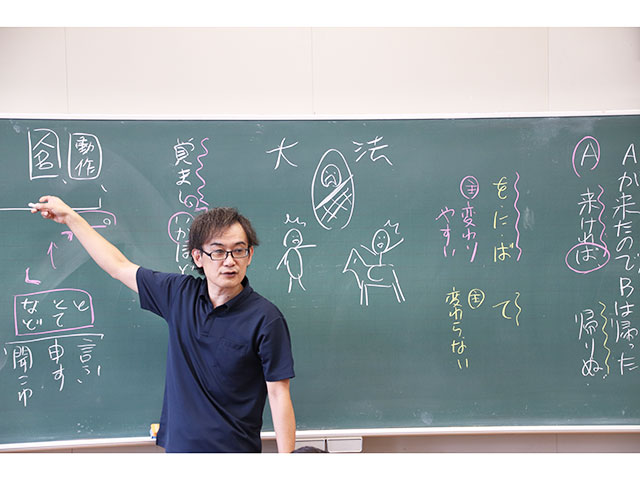 Aが来たのでBは帰った
A
帰りぬ
をにば
て
主変わり
やすい
主変わらない
法
大
動作
人名
と
とて
など
言ふ
申す
聞こゆ